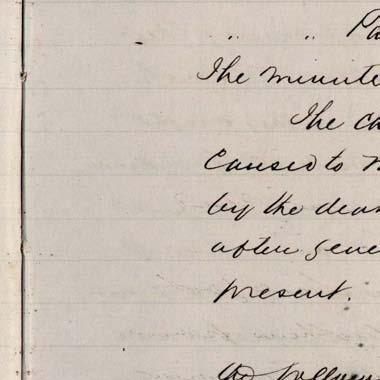 " "
The minute
The ca
caused to
by the dea
after gene
present.